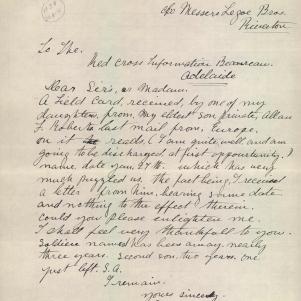 c/o Messers Legoe Bros.
To The.
Red Cross Information Beaureau.
Adelaide
Dear Sirs, or Madam.
A Field Card, received, by one of my
daughters, from, My eldest son private, Allan
L Roberts last mail from, Europe.
on it reads, (I am quite, well and am
going to be discharged, at first oppourtunity,)
name date Jan. 27th. which has very
much puzzled us the fact being, I received
a letter from him, bearing same date
and nothing to the effect therein,
could you please enlighten me.
I shall feel very thankfull to you.
Soldier named has been away nearly
three years. Second son two years. one
just left. S.A.
I remain.
yours sincerely